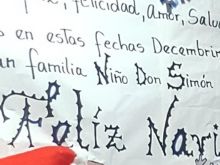 , felicidad, amor, Salu
en estas fechas Decembrin
an familia Niño Don Simón
Feliz Navi